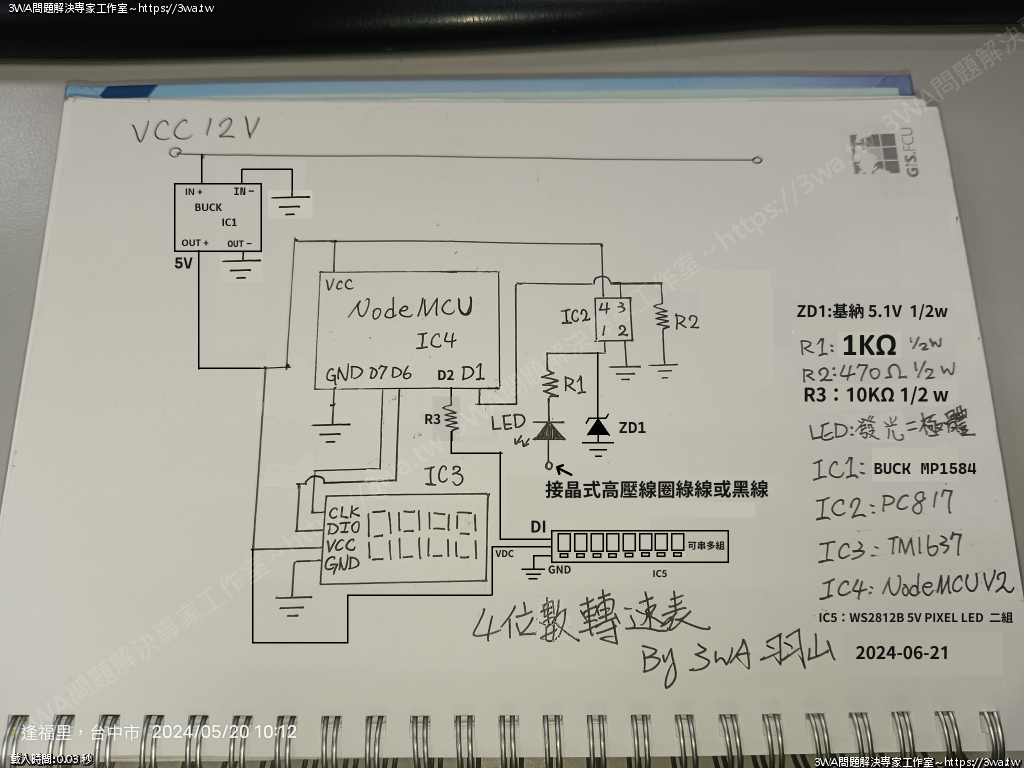 3WA問題解決專家工作室~https://3wa.tw
VCC 12V
GIS.FCU
IN + IN −
BUCK
IC1
OUT + OUT −
5V
VCC
NodeMCU
IC4
GND D7 D6 D2 D1
IC2
4 3
1 2
R2
R1
R3
LED
ZD1
接晶式高壓線圈綠線或黑線
IC3
CLK
DIO
VCC
GND
DI
VDC
GND
可串多組
IC5
ZD1:基納 5.1V 1/2w
R1: 1KΩ 1/2W
R2:470Ω 1/2 W
R3：10KΩ 1/2 w
LED:發光二極體
IC1: BUCK MP1584
IC2:PC817
IC3: TM1637
IC4: NodeMCU V2
IC5：WS2812B 5V PIXEL LED 二組
4位數轉速表
By 3WA 羽山
2024-06-21
逢福里，台中市 2024/05/20 10:12
載入時間:0.03 秒
3WA問題解決專家工作室~https://3wa.tw
3WA問題解決專家工作室~https://3wa.tw